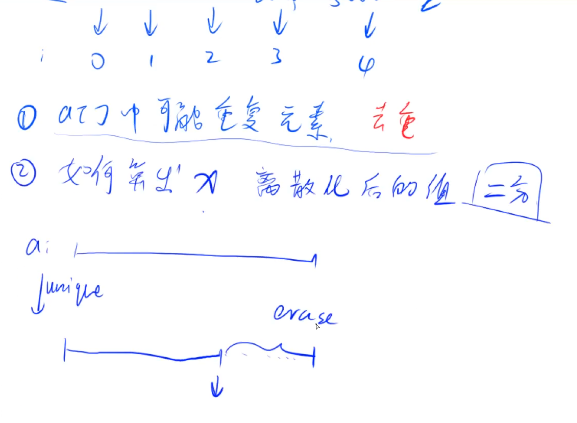 i 0 1 2 3 4
① a[]中可能重复元素. 去重
② 如何算出 x 离散化后的值 二分
a:
unique
erase